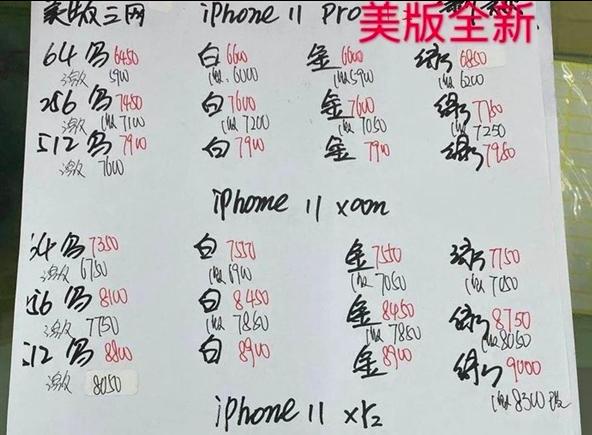 美版三网 iPhone 11 Pro 美版全新
64 黑 6450 白 6600 金 6600 绿 6850
激 5900 激 6000 激 5900 激 6200
256 黑 7450 白 7600 金 7600 绿 7750
激 7100 激 7200 激 7050 激 7250
512 黑 7900 白 7900 金 7900 绿 7950
激 7600
iPhone 11 xom
64 黑 7350 白 7550 金 7550 绿 7750
激 6750 激 6900 激 7050 激 7050
256 黑 8100 白 8450 金 8450 绿 8750
激 7750 激 7850 激 7850 激 8050
512 黑 8800 白 8900 金 8900 绿 9000
激 8050 激 8300
iPhone 11 xr2